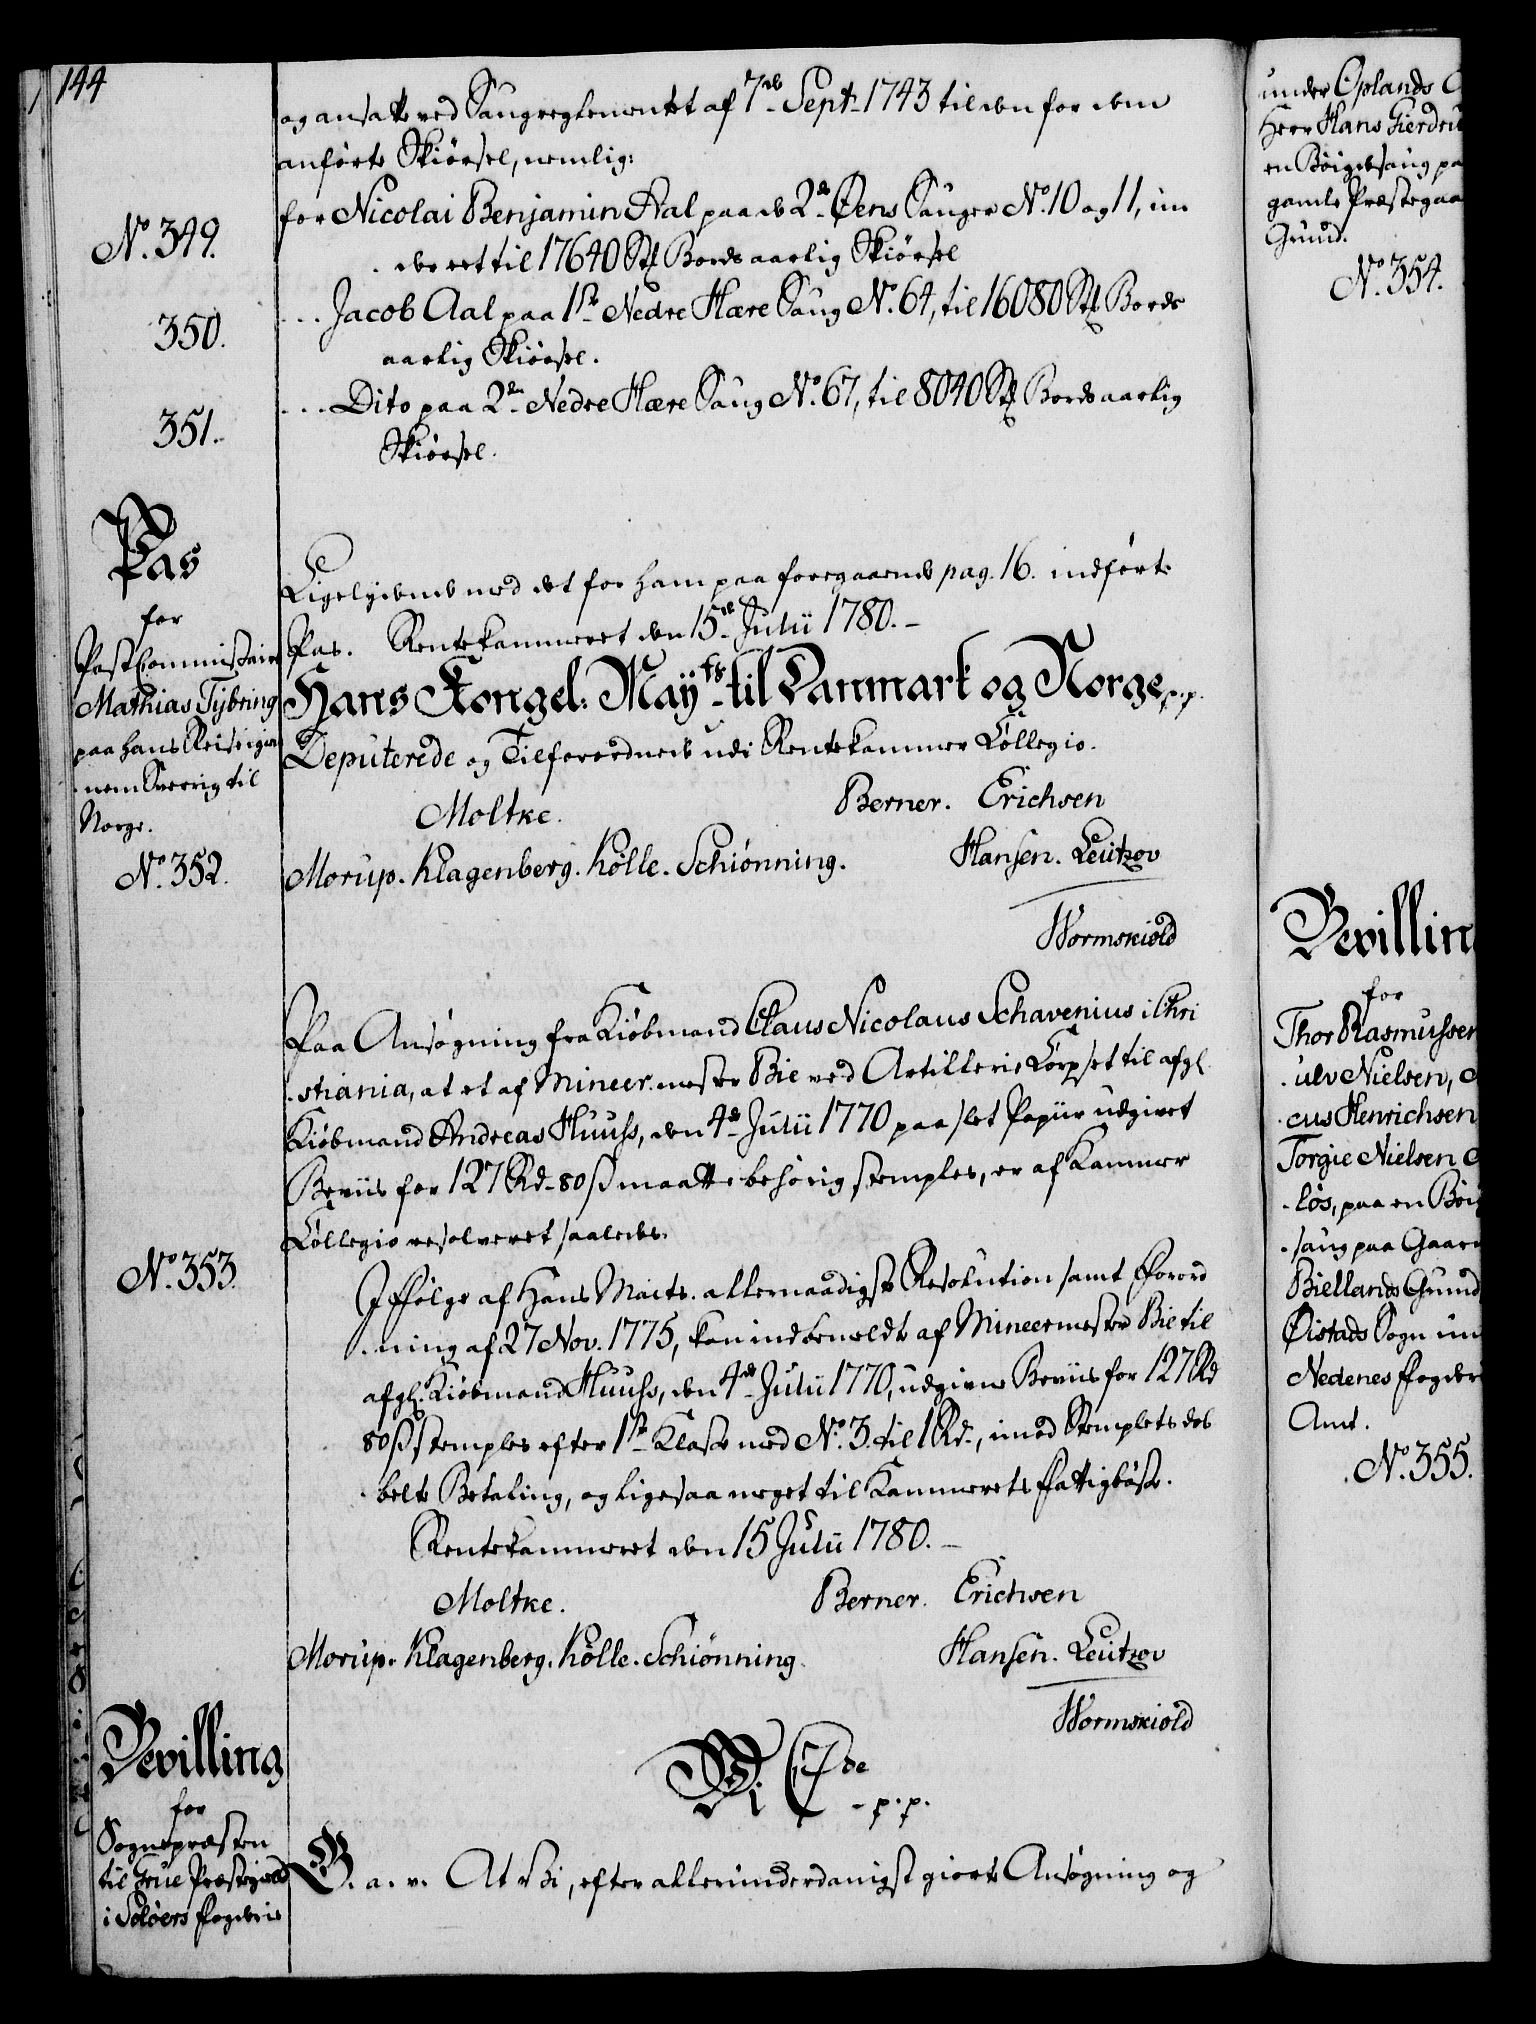 144
og ansatte ved Saugreglementet af 7de Septr 1743 til den for dem
anførte Skiørsel, nemlig:
No. 349.
for Nicolai Benjamin Aal paa de 2de Øens Sauger No. 10 og 11, im
deret til 17640 St. Bords aarlig Skiørsel
350.
... Jacob Aal paa 1ste Nedre Hære Saug No. 64, til 16080 St. Bords
aarlig Skiørsel.
351.
... Dito paa 2de Nedre Hære Saug No. 67, til 8040 St. Bords aarlig
Skiørsel.
Pas
for
PostCommissair
Mathias Tybring
paa hans Reise igien
nem Sverrig til
Norge.
No. 352.
Ligelydende med det for ham paa foregaaende pag. 16. indførte
Pas. Rentekammeret den 15de Julii 1780. -
Hans Kongel: Mayts til Danmark og Norge p.p.
Deputerede og Tilforordnede udi Rentekammer Collegio.
Moltke. Berner. Erichsen
Morup. Klagenberg. Kølle. Schiønning. Hansen. Leützov
Wormskiold
Paa Ansøgning fra Kiøbmand Claus Nicolaus Schavenius i Chri
stiania, at et af Mineermester Bie ved Artillerie Corpset til afgl.
Kiøbmand Andreas Huuss, den 4de Julii 1770 paa slet Papiir udgivet
Beviis for 127 Rd. 80 ß maatte behørig stemples, er af Kammer
Collegio resolveret saaledes.
No. 353.
I Følge af Hans Maits. allernaadigste Resolution samt Forord
ning af 27 Nov. 1775, kan indbemeldte af Mineermester Bie til
afgl. Kiøbmand Huuss, den 4de Julii 1770, udgivne Beviis for 127 Rd
80 ß stemples efter 1ste Klasse med No. 3. til 1 Rd., imod Stemplets dob
belte Betaling, og ligesaa meget til Kammerets Fattigbøsse.
Rentekammeret den 15 Julii 1780. -
Moltke. Berner. Erichsen
Morup. Klagenberg. Kølle. Schiønning. Hansen. Leützov
Wormskiold
Bevilling
for
Sognepræsten
til Grue Præstegield
i Soløers Fogderie
Vi C 7de
- p.p.
G. a. v. At Vi, efter allerunderdanigst giorte Ansøgning og
under Oplands
Herr Hans Gierdru
en Bøigdesaug pa
gamle Præstegaa
Grund.
No. 354.
Bevillin
for
Thor Rasmussen
ulv Nielsen,
cus Henrichsen
Torgie Nielsen
løs, paa en Bøi
saug paa Gaar
Biellands Grund
Øistads Sogn un
Nedenes Fogder
Amt.
No. 355.